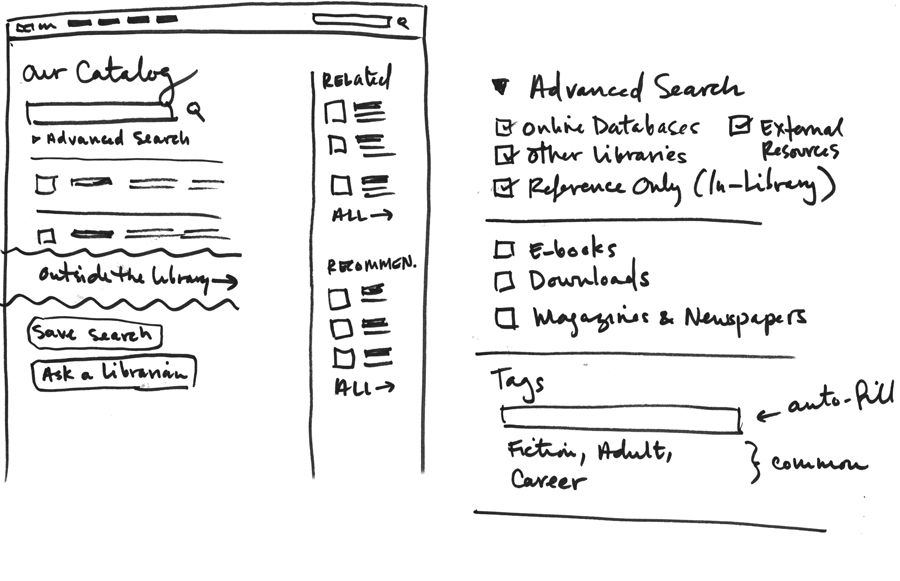 Our Catalog
Advanced Search
Outside the Library →
Save Search
Ask a Librarian
RELATED
ALL →
RECOMMEN.
ALL →
Advanced Search
Online Databases
External
Resources
Other Libraries
Reference Only (In-Library)
E-books
Downloads
Magazines & Newspapers
Tags
← auto-fill
Fiction, Adult,
Career
common